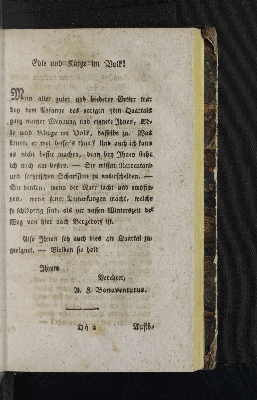 Edle und Kluge im Volk!
Mein alter guter und biederer Vetter war
bey dem Anfange des vorigen 3ten Quartals
ganz meiner Meynung und eignete Ihnen, Ed-
le und Kluge im Volk, dasselbe zu. Was
konnte er wol bessers thun? und auch ich kann
es nicht besser machen, denn bey Ihnen steht
sich mich am besten. — Sie wissen Menschen
und satyrischen Scharfsinn zu unterscheiden. —
Sie denken, wenn der Narr lacht und
den, wenn seine Anmerkungen macht, welche
so schlüpfrig sind, als zur nassen Winterzeit der
Weg von hier nach Bergedorf ist.
Also Ihnen sey auch dies 4te Quartal zu-
geeignet. — Bleiben sie hold
Ihrem
Verehrer,
A. F. Bonaventurus.
Qq 2
Aufth-